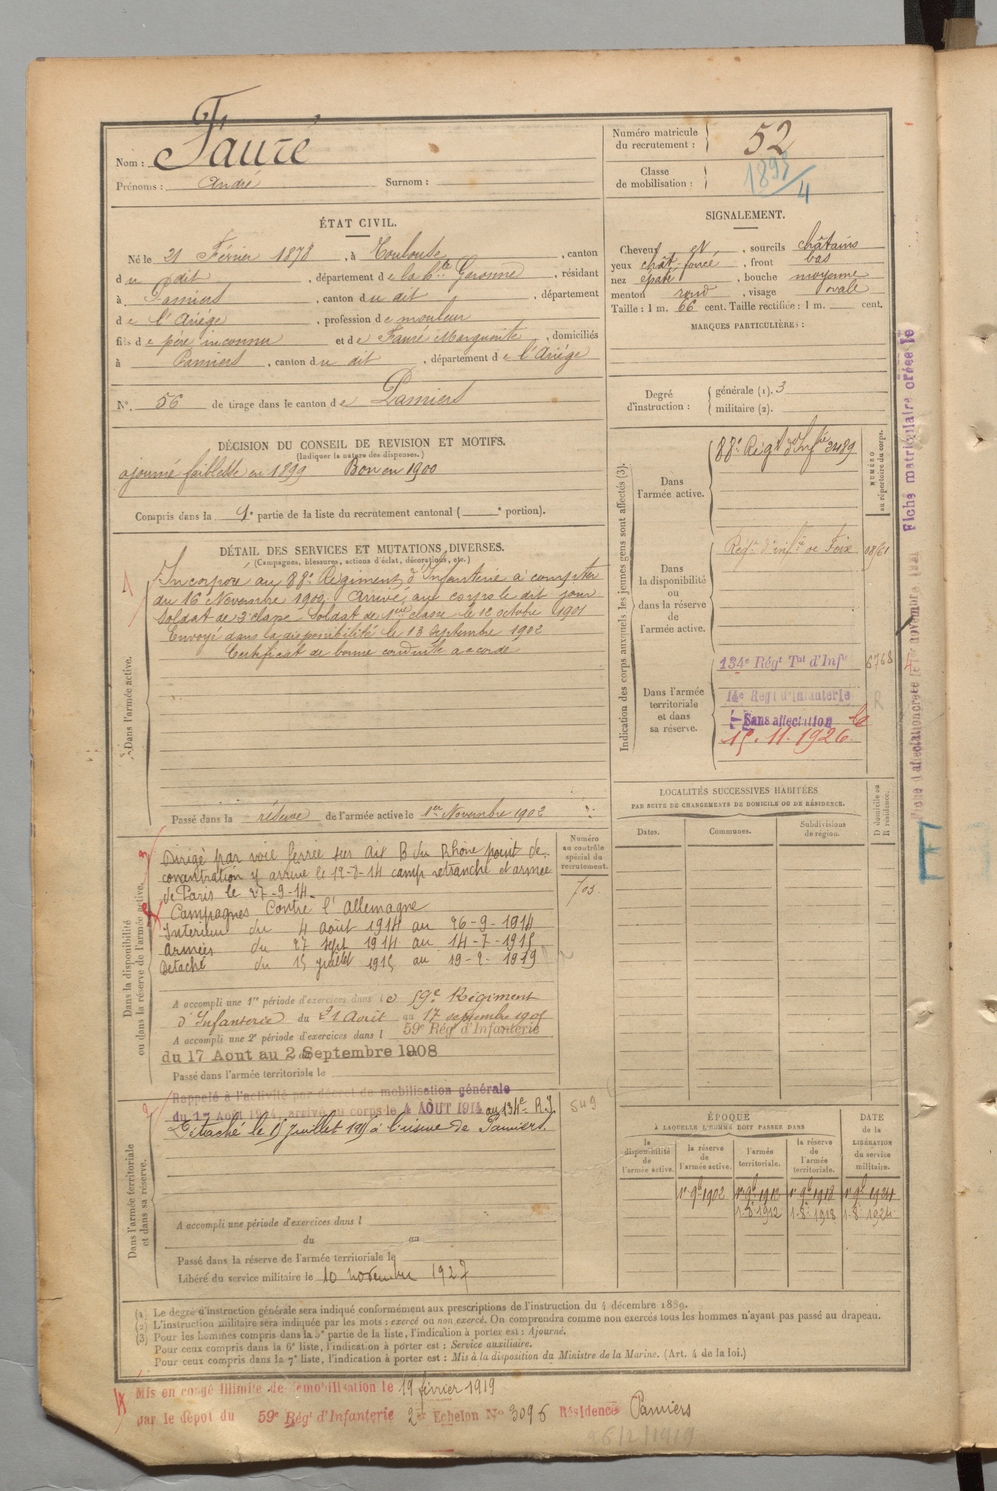 Nom : Fauré
Prénoms : André Surnom :
Numéro matricule du recrutement : 52
Classe de mobilisation : 1898/4
ÉTAT CIVIL.
Né le 21 Février 1878, à Toulouse, canton
du dit, département de la hte Garonne, résidant
à Pamiers, canton du dit, département
de l'Ariège, profession de mouleur
fils de père inconnu et de Fauré Marguerite, domiciliés
à Pamiers, canton du dit, département de l'Ariège
N° 56 de tirage dans le canton de Pamiers
SIGNALEMENT.
Cheveux et, sourcils châtains
yeux chât. foncé, front bas
nez épaté, bouche moyenne
menton rond, visage ovale
Taille : 1 m. 66 cent. Taille rectifiée : 1 m. cent.
MARQUES PARTICULIÈRES :
Degré d'instruction : générale (1). 3
militaire (2).
DÉCISION DU CONSEIL DE REVISION ET MOTIFS.
(Indiquer la nature des dispenses.)
ajourné faiblesse en 1899 Bon en 1900
Compris dans la 1e partie de la liste du recrutement cantonal ( e portion).
DÉTAIL DES SERVICES ET MUTATIONS DIVERSES.
(Campagnes, blessures, actions d'éclat, décorations, etc.)
Dans l'armée active.
Incorporé au 88e Régiment d'Infanterie à compter
du 16 Novembre 1900, Arrivé au corps le dit jour
Soldat de 2e classe. Soldat de 1ère classe le 12 octobre 1901
Envoyé dans la disponibilité le 13 Septembre 1902
Certificat de bonne conduite accordé
Passé dans la réserve de l'armée active le 1er Novembre 1902
Indication des corps auxquels les jeunes gens sont affectés (3).
NUMÉRO au répertoire du corps.
Dans l'armée active.
88e Régt d'Infie 3489
Dans la disponibilité ou dans la réserve de l'armée active.
Régt d'infie de Foix
Dans l'armée territoriale et dans sa réserve.
134e Régt Tal d'Infie 6768
14e Régt d'Infanterie
Sans affectation le
15.11.1926
LOCALITÉS SUCCESSIVES HABITÉES
PAR SUITE DE CHANGEMENTS DE DOMICILE OU DE RÉSIDENCE.
Dates. Communes. Subdivisions de région. D domicile ou R résidence.
Dans la disponibilité ou dans la réserve de l'armée active.
Numéro au contrôle spécial du recrutement.
703
Dirigé par voie ferrée sur Ais B du Rhône point de
concentration y arrivé le 12-8-14 camp retranché et armée
de Paris le 27-9-14
Campagnes Contre l'Allemagne
Intérieur du 4 août 1914 au 26-9-1914
Armées du 27 sept 1914 au 14-7-1915
Détaché du 15 juillet 1915 au 19-2-1919
A accompli une 1re période d'exercices dans le 59e Régiment
d'Infanterie du 21 Août au 17 septembre 1905
A accompli une 2e période d'exercices dans l 59e Rég' d'Infanterie
du 17 Aout au 2 Septembre 1908
Passé dans l'armée territoriale le
Dans l'armée territoriale et dans sa réserve.
Rappelé à l'activité par décret de mobilisation générale
du 1er Aout 1914, arrivé au corps le 4 AOUT 1914 au 134e R.I. 549
Détaché le 15 Juillet 1915 à l'usine de Pamiers.
A accompli une période d'exercices dans l
du au
Passé dans la réserve de l'armée territoriale le
Libéré du service militaire le 10 novembre 1927
ÉPOQUE
À LAQUELLE L'HOMME DOIT PASSER DANS
la disponibilité de l'armée active. la réserve de l'armée active. l'armée territoriale. la réserve de l'armée territoriale.
DATE de la LIBÉRATION du service militaire.
1er 9b 1902 1er 9b 1912 1er 9b 1918 1er 9b 1924
1.8.1912 1.8.1918 1.8.1924
(1) Le degré d'instruction générale sera indiqué conformément aux prescriptions de l'instruction du 4 décembre 1889.
(2) L'instruction militaire sera indiquée par les mots : exercé ou non exercé. On comprendra comme non exercés tous les hommes n'ayant pas passé au drapeau.
(3) Pour les hommes compris dans la 5e partie de la liste, l'indication à porter est : Ajourné.
Pour ceux compris dans la 6e liste, l'indication à porter est : Service auxiliaire.
Pour ceux compris dans la 7e liste, l'indication à porter est : Mis à la disposition du Ministre de la Marine. (Art. 4 de la loi.)
Mis en congé illimité de démobilisation le 19 février 1919
par le dépôt du 59e Régt d'Infanterie 2e Echelon No 3096 Résidence Pamiers
26/2/1919
Fiche matriculaire créée le